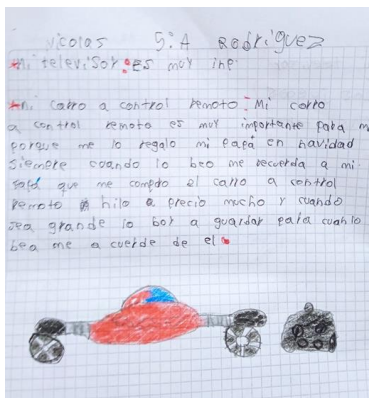 Nicolas 5:A Rodriguez
Mi televisor:es muy inp
mi carro a control remoto: Mi corro
a control remoto es muy importante para m
porque me lo regalo mi papá en navidad
siempre cuando lo beo me recuerda a mi
papá que me compro el carro a control
remoto hilo a precio mucho y cuando
sea grande lo boy a guardar para cuanlo
bea me a cuerde de el.